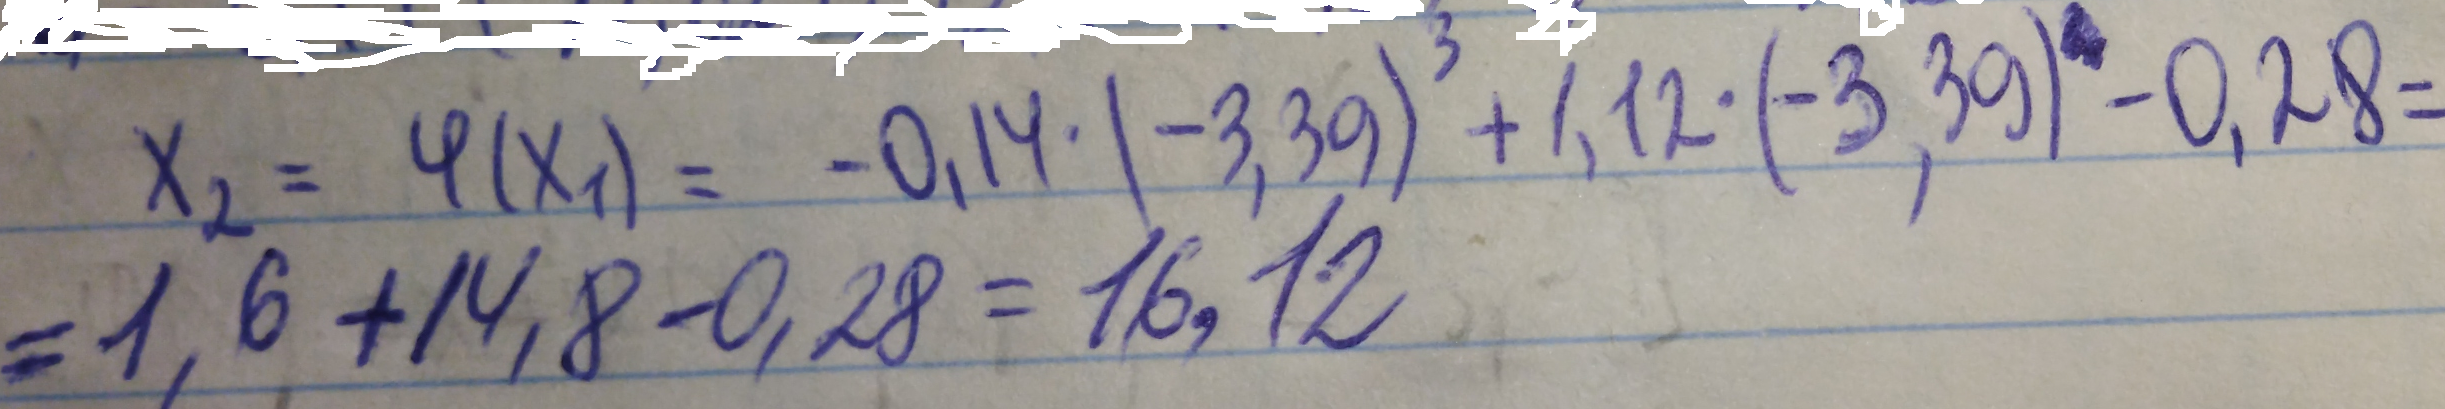 x₂ = φ(x₁) = -0,14·(-3,39)³ + 1,12·(-3,39) - 0,28 =
= 1,6 + 14,8 - 0,28 = 16,12